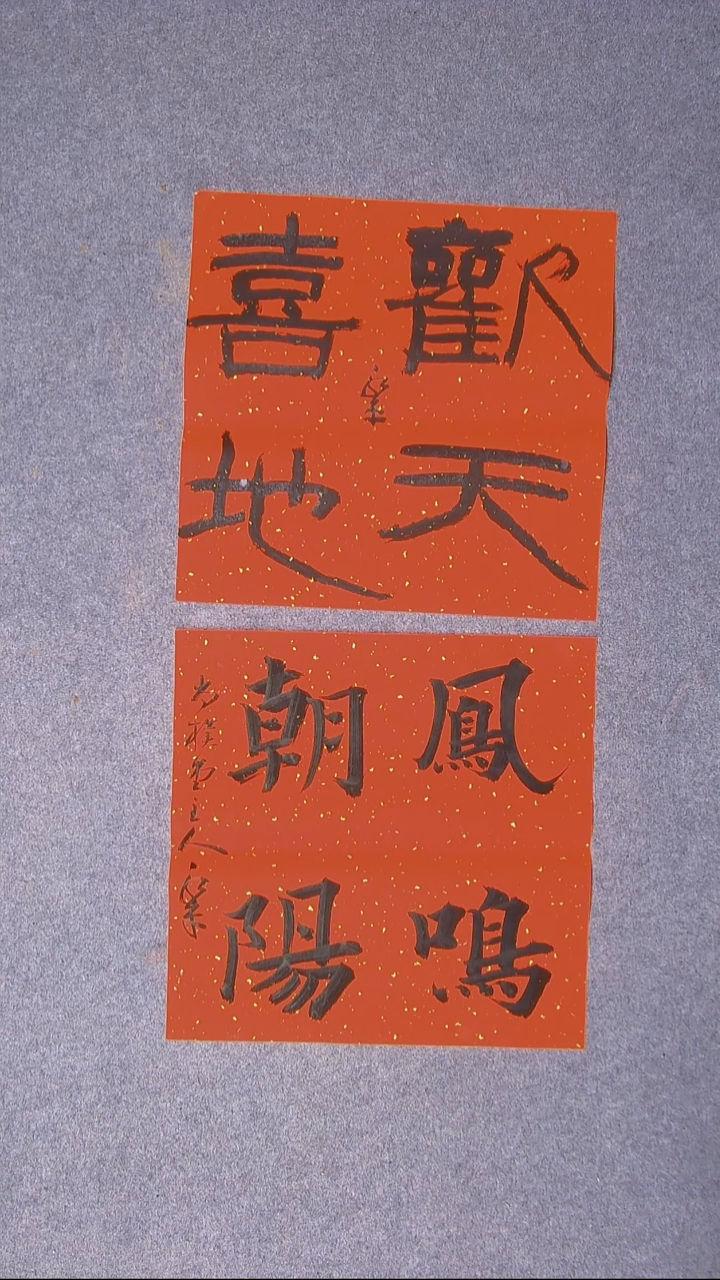 歡天
喜地
鳳鳴
朝陽
主人